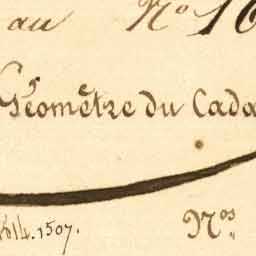 au No 16
Géomètre du Cada
1614.1507. Nos